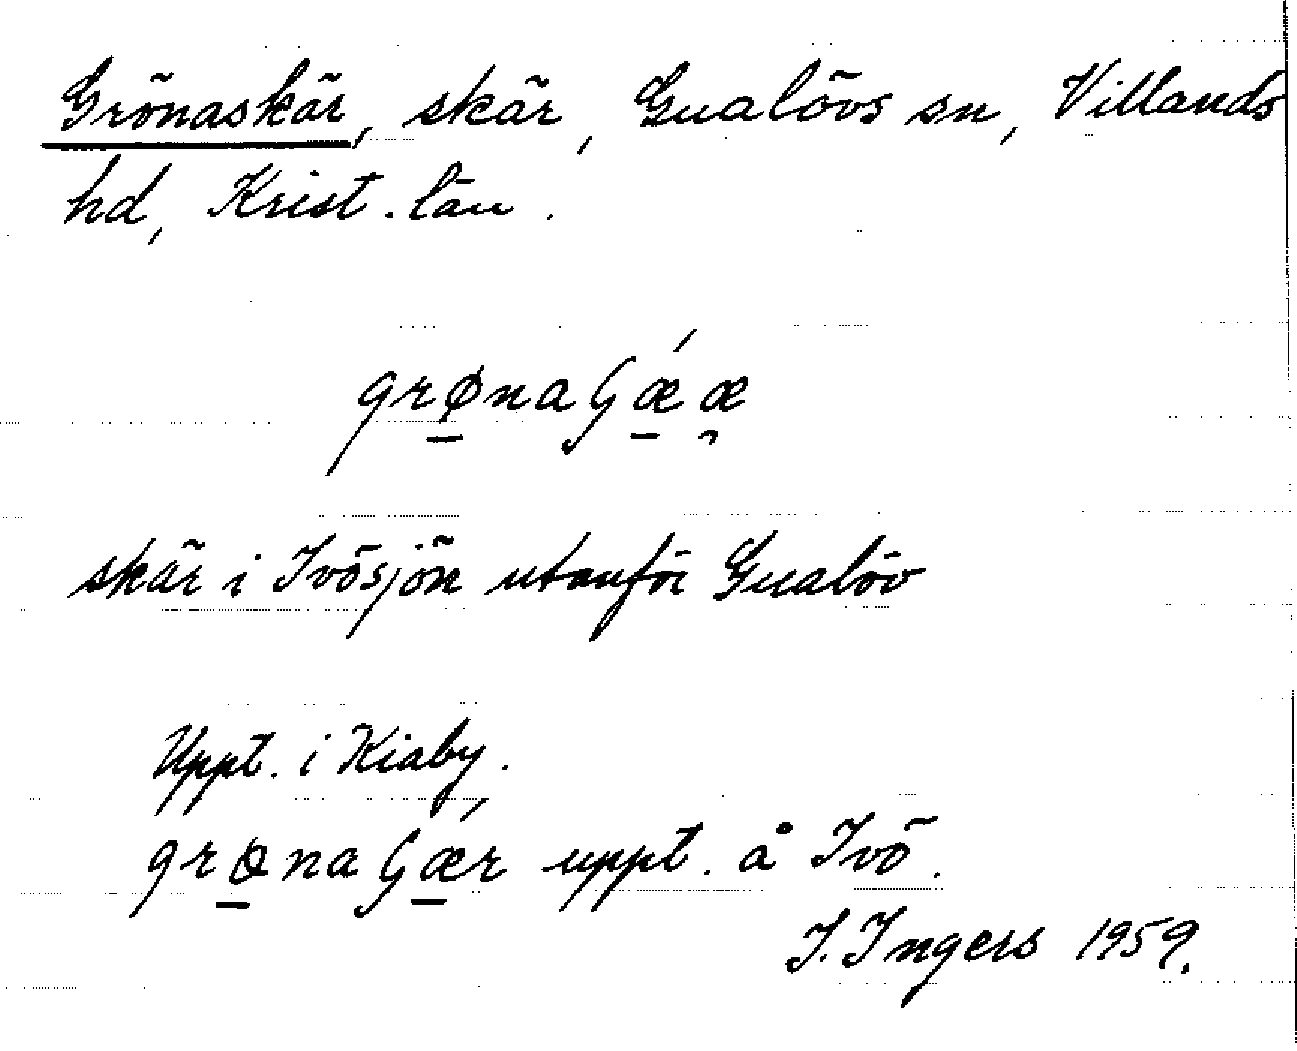 Grönaskär, skär, Gualövs sn, Villands
hd, Krist. län.
grø̱naʃǽ̱æ̯
skär i Ivösjön utanför Gualöv
Uppt. i Kiaby.
grɵ̱naʃǽ̱r uppt. å Ivö.
I. Ingers 1959.